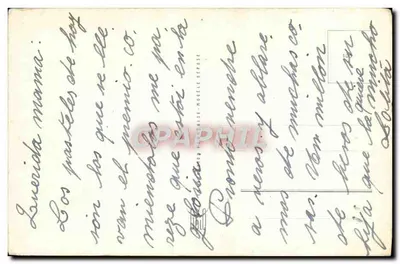 Querida mama:
Los pasteles de hoy
son los que se lle
van el premio. co
miendolos me pa
rece que estoi en la
gloria
Pronto vendre
a veros y ablare
mos de muchas co
sas. Van millon
de besos de su
hija que la quiere mucho
Lolita